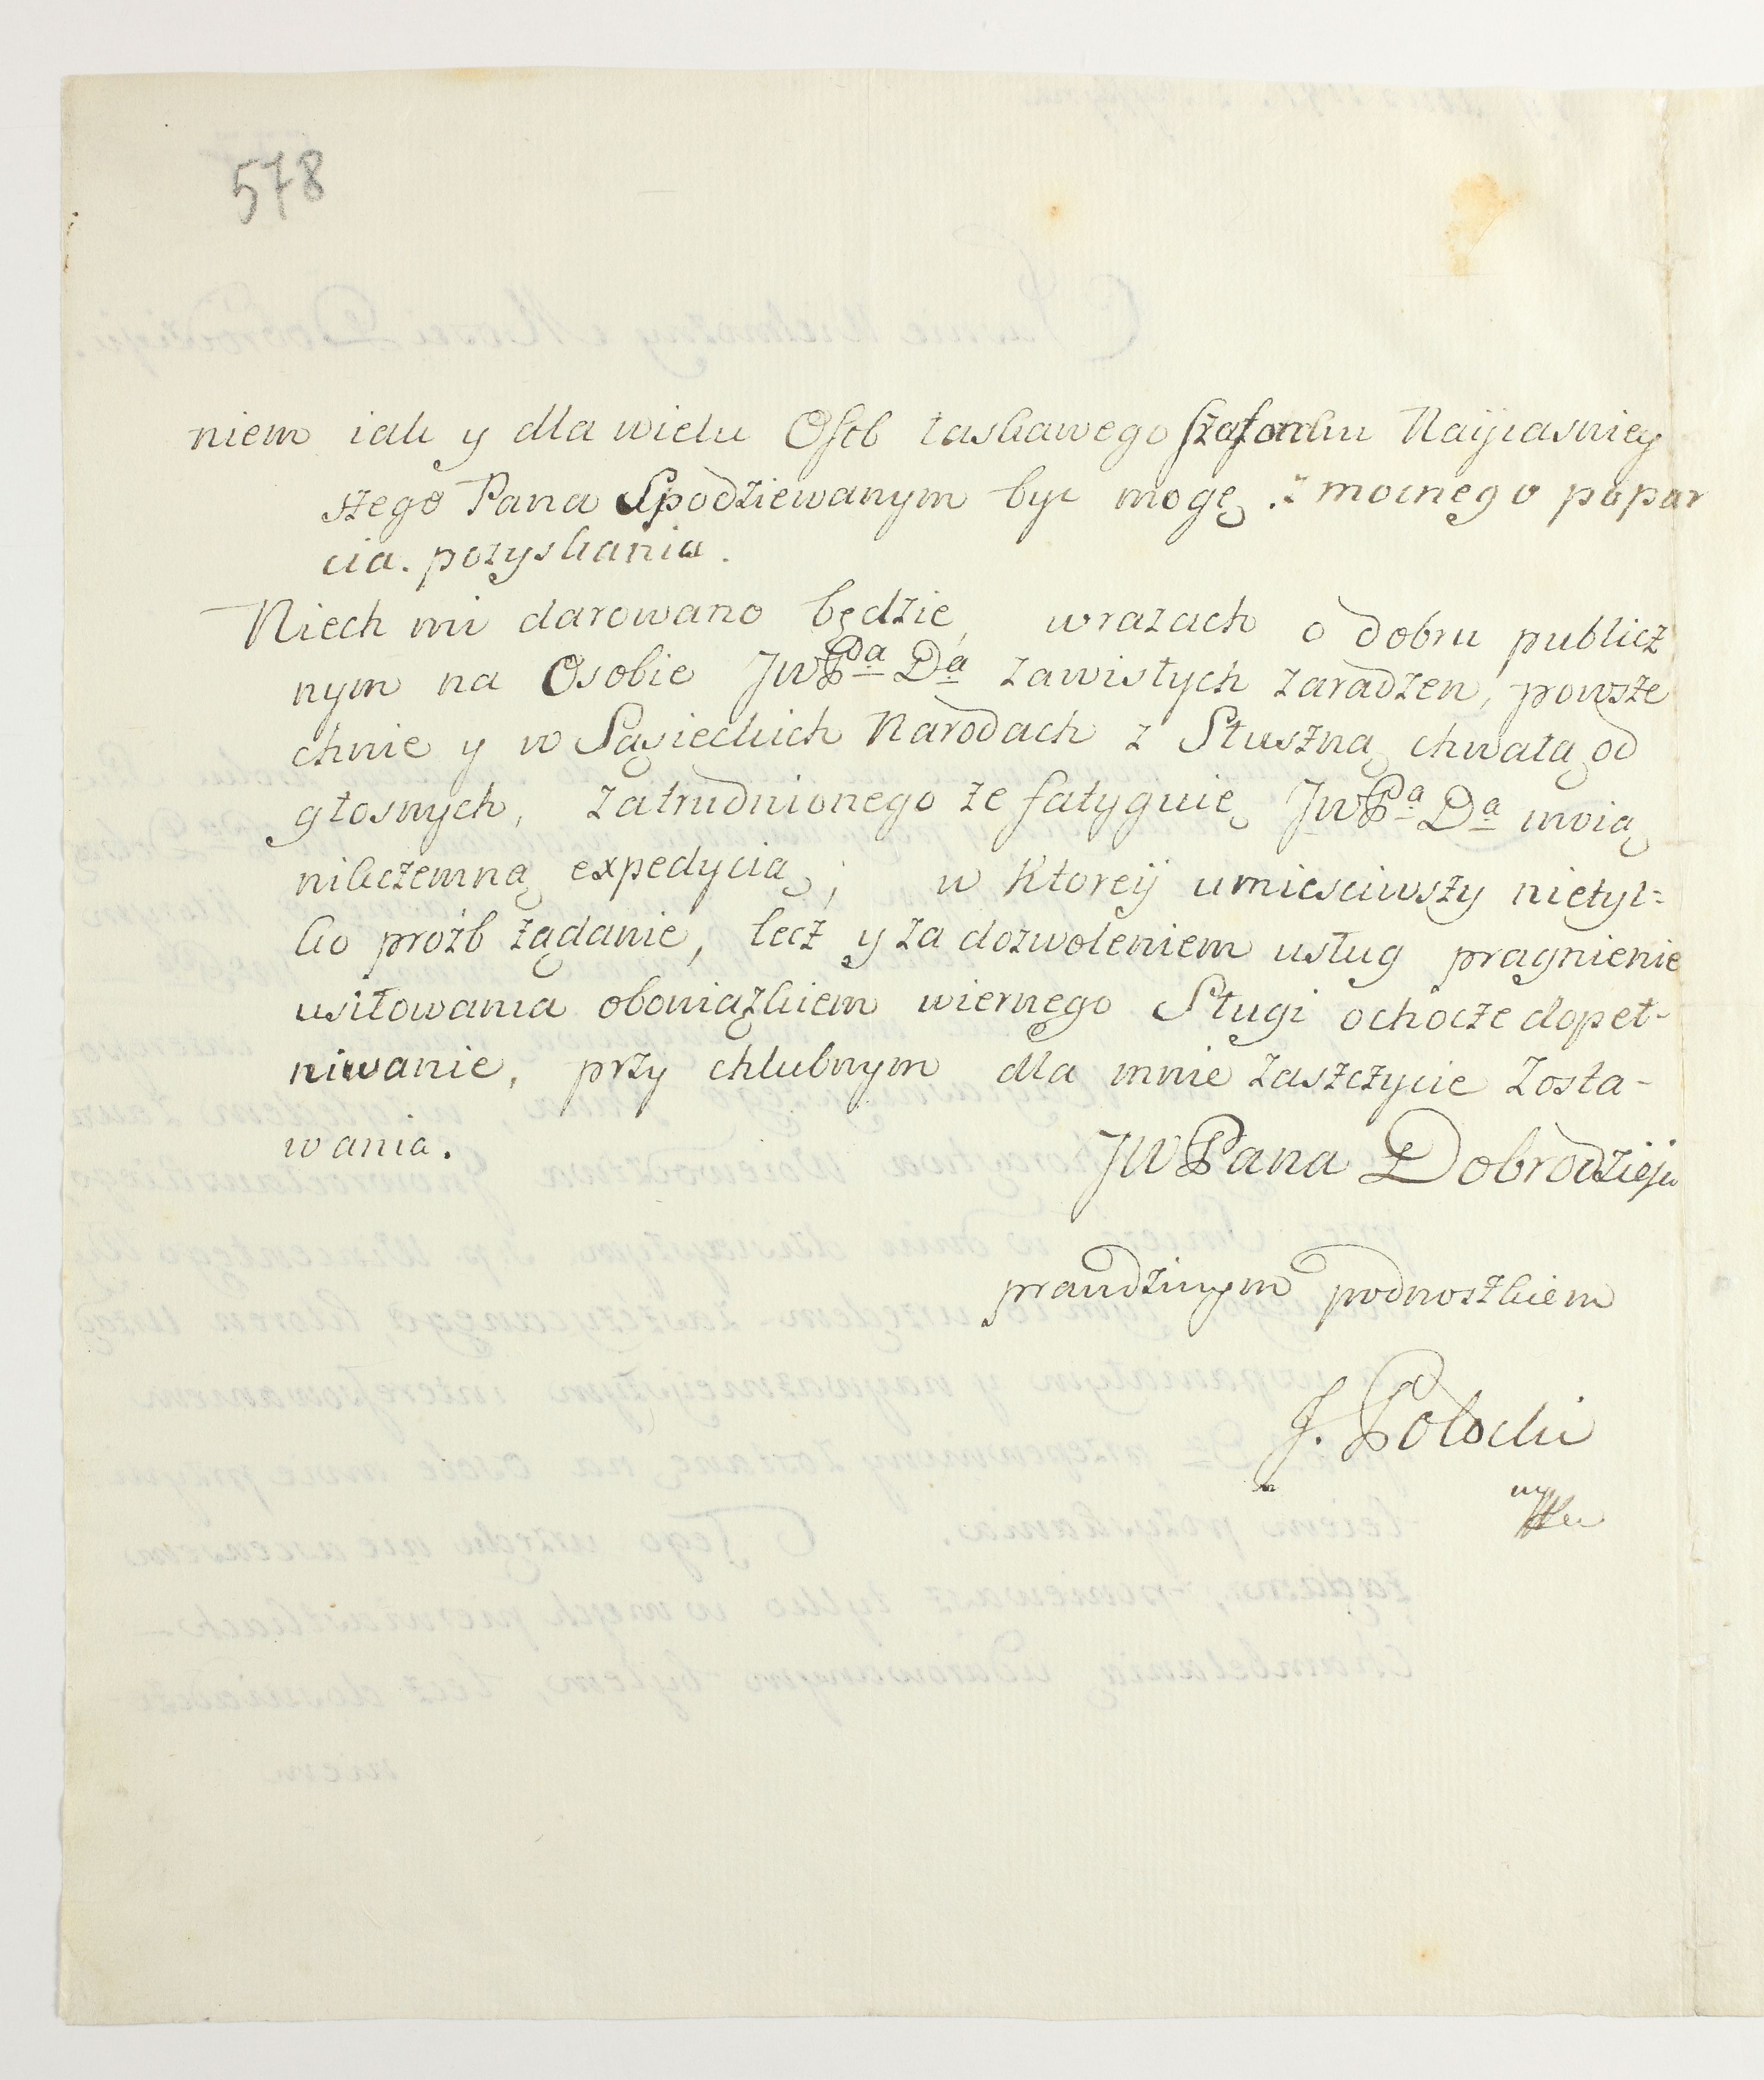 578
niem iak y dla wielu Osob łaskawego szafunku Nayiasniey
szego Pana Spodziewanym byc mogę. z mocnego popar
cia. pozyskania.
Niech mi darowano będzie, wrazach o dobru publicz
nym na Osobie JWPa Da zawisłych zaradzen, powsze
chnie y w Sąsieckich Narodach z Słuszną chwałą od
głosnych, zatrudnionego ze fatyguię JWPa Da moią
nikczemną expedycią; w ktoreij umiesciwszy nietyl=
ko prozb ządanie, lecz y za dozwoleniem usług pragnienie
usiłowania obowiązkiem wiernego Sługi ochocze dopeł-
niwanie, przy chlubnym dla mnie zaszczycie zosta-
wania.
JWPana Dobrodzieja
prawdziwym podnoszkiem
J. Potocki